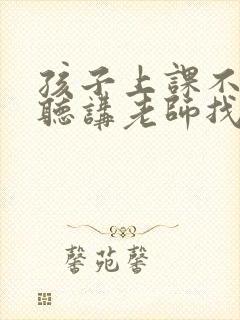 孩子上課不
聽講老師找
馨苑馨